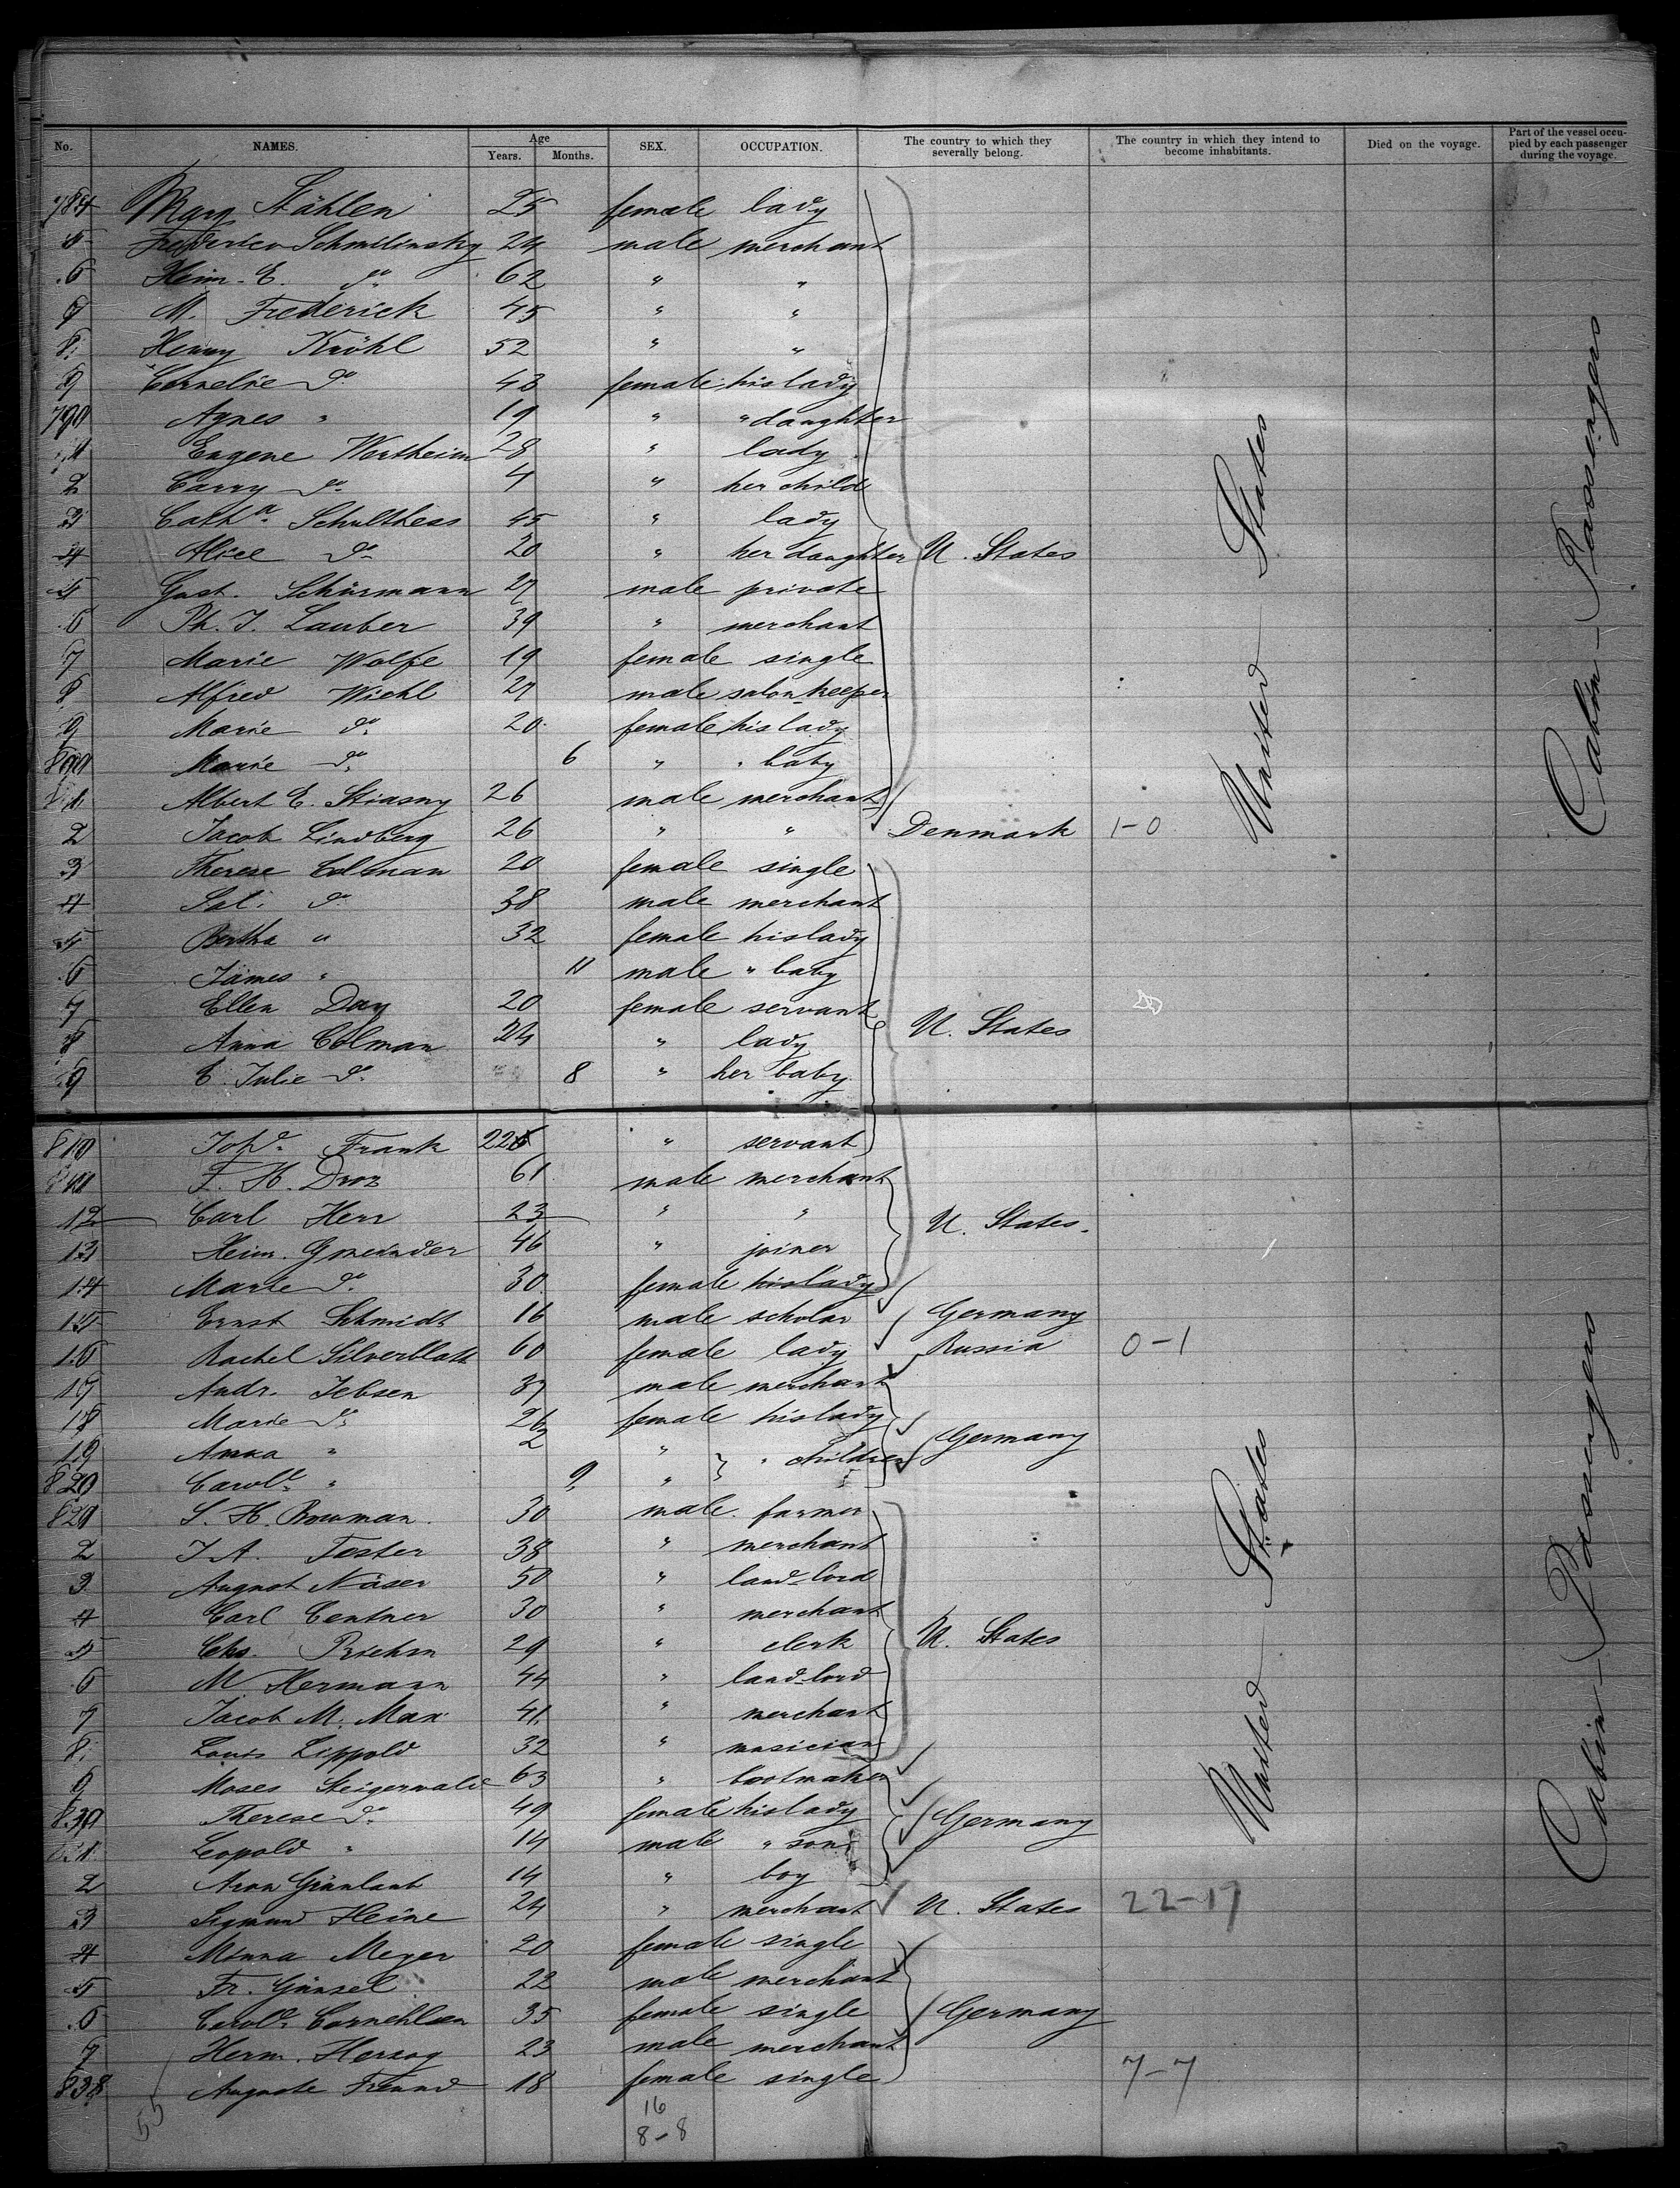 No. NAMES. Age Years. Months. SEX. OCCUPATION. The country to which they severally belong. The country in which they intend to become inhabitants. Died on the voyage. Part of the vessel occupied by each passenger during the voyage.
784 Mary Stählen 25 female lady
5 Frederico Schmilinsky 24 male merchant
6 Heinr. E. do 62 " "
7 M. Frederick 45 " "
8 Henry Kröhl 52 " "
9 Cornelie do 43 female his lady
790 Agnes " 19 " " daughter
1 Eugene Wertheim 28 " lady
2 Carry do 4 " her child
3 Catha. Schulthess 45 " lady
4 Alice do 20 " her daughter U. States
5 Gust. Schürmann 27 male private
6 Ph. J. Lauber 39 " merchant
7 Marie Wolfe 19 female single
8 Alfred Wichl 27 male salon-keeper
9 Marie do 20 female his lady
800 Marie do 6 " " baby
1 Albert E. Stiasny 26 male merchant
2 Jacob Lindberg 26 " " Denmark 1-0
3 Therese Colman 20 female single
4 Sal. do 38 male merchant
5 Bertha " 32 female his lady
6 James " 11 male " baby
7 Ellen Day 20 female servant
8 Anna Colman 24 " lady U. States
9 E. Julie do 8 " her baby
810 Joh. Frank " servant
811 F. H. Droz 61 male merchant
12 Carl Herr 23 " " U. States
13 Heinr. Gmeinder 46 " joiner
14 Marie do 30 female his lady
15 Ernst Schmidt 16 male scholar Germany
16 Rachel Silverblatt 60 female lady Russia 0-1
17 Andr. Jebsen 37 male merchant
18 Marie do 26 female his lady
19 Anna " 2 " " children Germany
820 Carol. " 9 "
821 S. H. Bowman 30 male farmer
2 J. A. Foster 38 " merchant
3 August Näser 50 " land-lord
4 Carl Centner 30 " merchant
5 Chs. Richm 29 " clerk U. States
6 M Hermann 44 " land-lord
7 Jacob M. Max 41 " merchant
8 Louis Lippold 32 " musician
9 Moses Steigerwald 63 " bootmaker
830 Therese do 49 female his lady Germany
831 Leopold " 14 male " son
2 Aron Grünlaub 14 " boy
3 Sigmund Heine 24 " merchant U. States 22-17
4 Minna Meyer 20 female single
5 Fr. Günsel 22 male merchant
6 Carol. Cornehlsen 35 female single Germany
7 Herm. Herzog 23 male merchant
838 Auguste Freund 18 female single 7-7
55
16
8-8
United States
Cabin Passengers
United States
Cabin Passengers